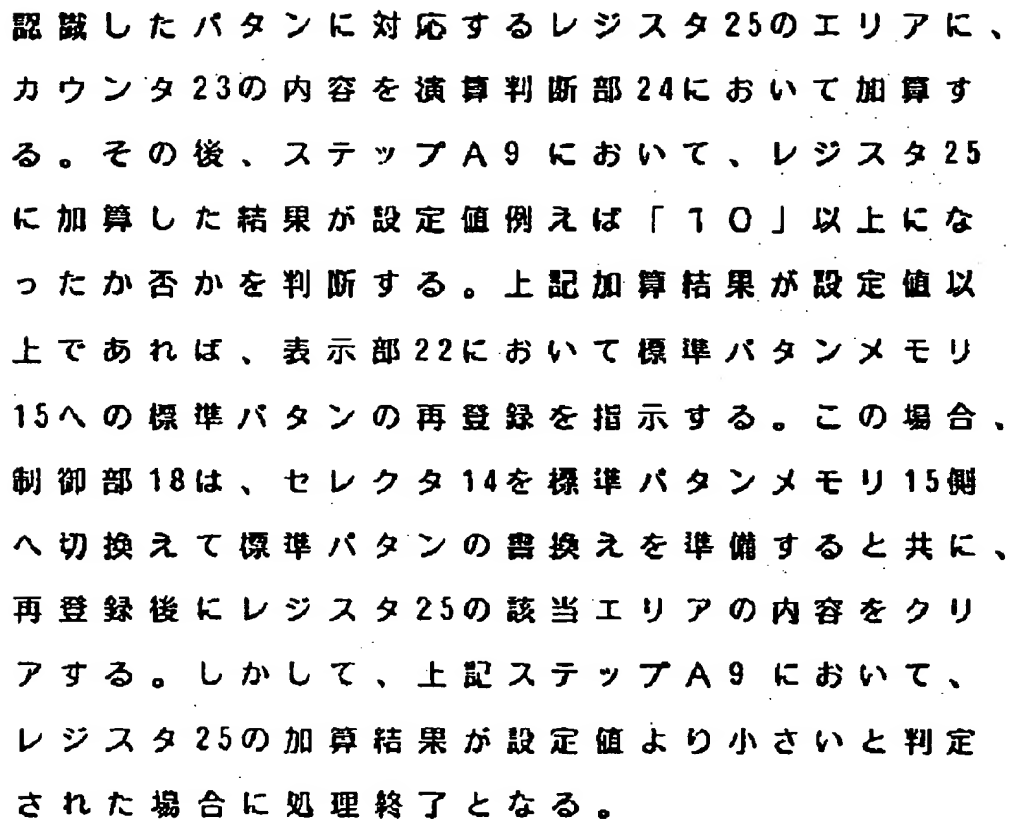 認識したパタンに対応するレジスタ25のエリアに、
カウンタ23の内容を演算判断部24において加算す
る。その後、ステップA9において、レジスタ25
に加算した結果が設定値例えば「10」以上にな
ったか否かを判断する。上記加算結果が設定値以
上であれば、表示部22において標準パタンメモリ
15への標準パタンの再登録を指示する。この場合、
制御部18は、セレクタ14を標準パタンメモリ15側
へ切換えて標準パタンの書換えを準備すると共に、
再登録後にレジスタ25の該当エリアの内容をクリ
アする。しかして、上記ステップA9において、
レジスタ25の加算結果が設定値より小さいと判定
された場合に処理終了となる。